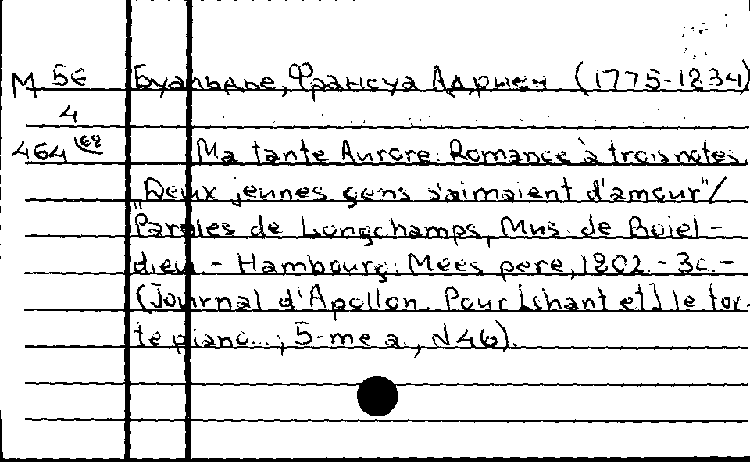 М 56 Буальдье, Франсуа Адриен (1775-1834)
4
464 Ma tante Aurore: Romance à trois notes
"Deux jeunes gens s'aimaient d'amour"/
Paroles de Longchamps, Mus. de Boiel-
dieu. - Hambourg: Mees pere, 1802. - 3c. -
(Journal d'Apollon. Pour [chant et] le for-
te piano...; 5-me a., N46).